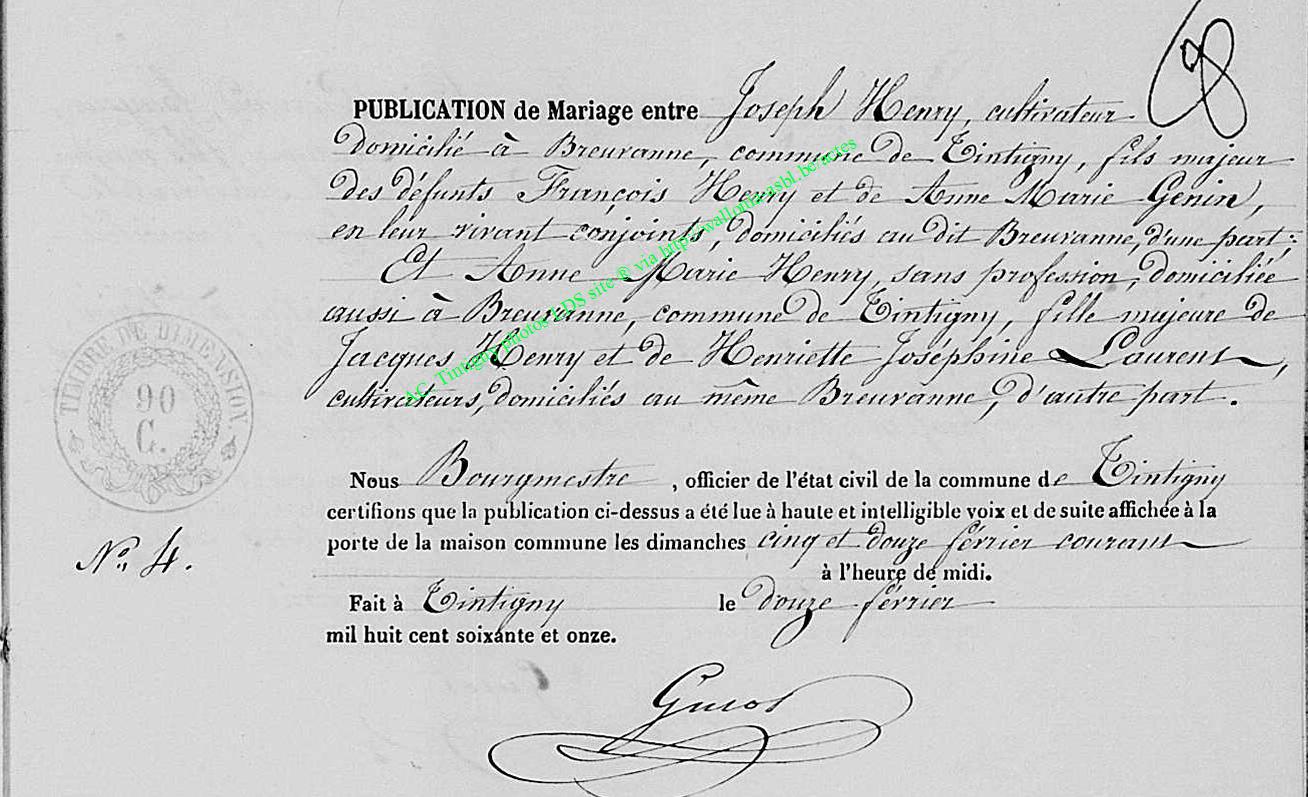 8
PUBLICATION de Mariage entre Joseph Henry, cultivateur
domicilié à Breuvanne, commune de Tintigny, fils majeur
des défunts François Henry et de Anne Marie Genin,
en leur vivant conjoints, domiciliés au dit Breuvanne, d'une part;
Et Anne Marie Henry, sans profession, domiciliée
aussi à Breuvanne, commune de Tintigny, fille majeure de
Jacques Henry et de Henriette Joséphine Laurent,
cultivateurs, domiciliés au même Breuvanne, d'autre part.
AC Tintigny photos LDS site ® via http://wallonia.asbl.be/actes
TIMBRE DE DIMENSION
90
C.
Nous Bourgmestre, officier de l'état civil de la commune de Tintigny
certifions que la publication ci-dessus a été lue à haute et intelligible voix et de suite affichée à la
porte de la maison commune les dimanches cinq et douze février courant
à l'heure de midi.
No. 4.
Fait à Tintigny le douze février
mil huit cent soixante et onze.